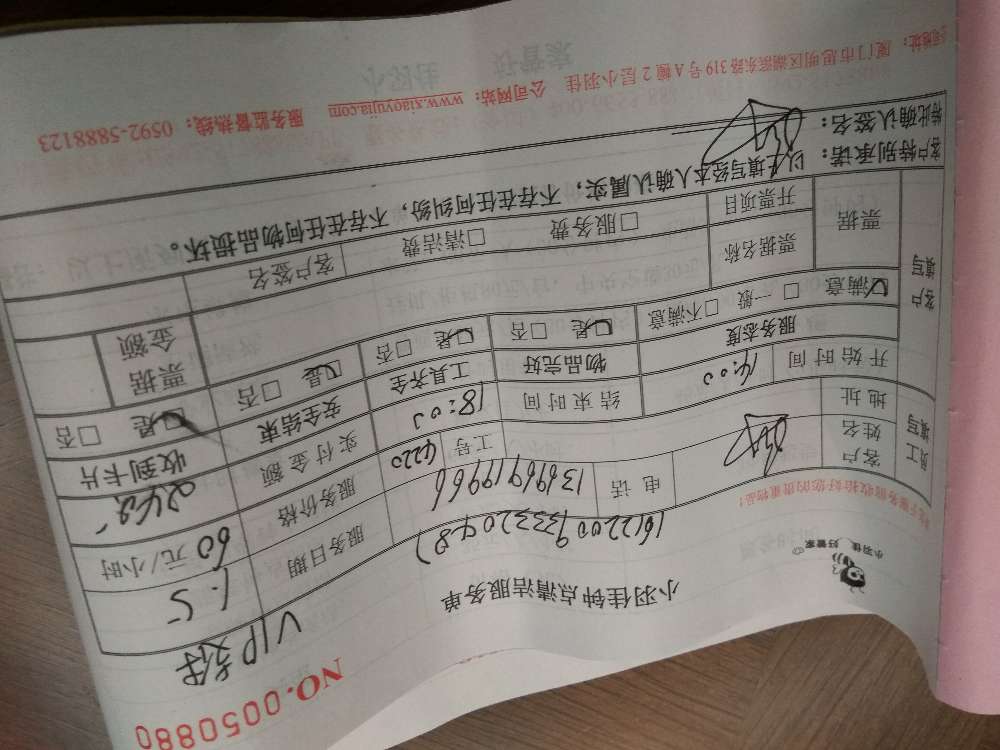 NO.0050880
小羽佳 好管家
小羽佳钟点清洁服务单
VIP
员工填写
客户姓名
电话
服务日期
1.5
地址
工号 4220
服务价格 60 元/小时
开始时间 14:00
结束时间 18:00
实付金额
服务态度
物品完好
工具齐全
安全结束
收到卡片
☑满意 □一般 □不满意
☑是 □否
☑是 □否
☑是 □否
☑是 □否
客户填写
票据
票据名称
□服务费 □清洁费
票据金额
开票项目
客户签名
客户特别承诺：以上填写经本人确认属实，不存在任何纠纷，不存在任何物品损坏。
特此确认签名：
厦门市思明区湖滨东路319号A幢2层小羽佳 公司网站：www.xiaoyujia.com 服务监督热线：0592-5888123